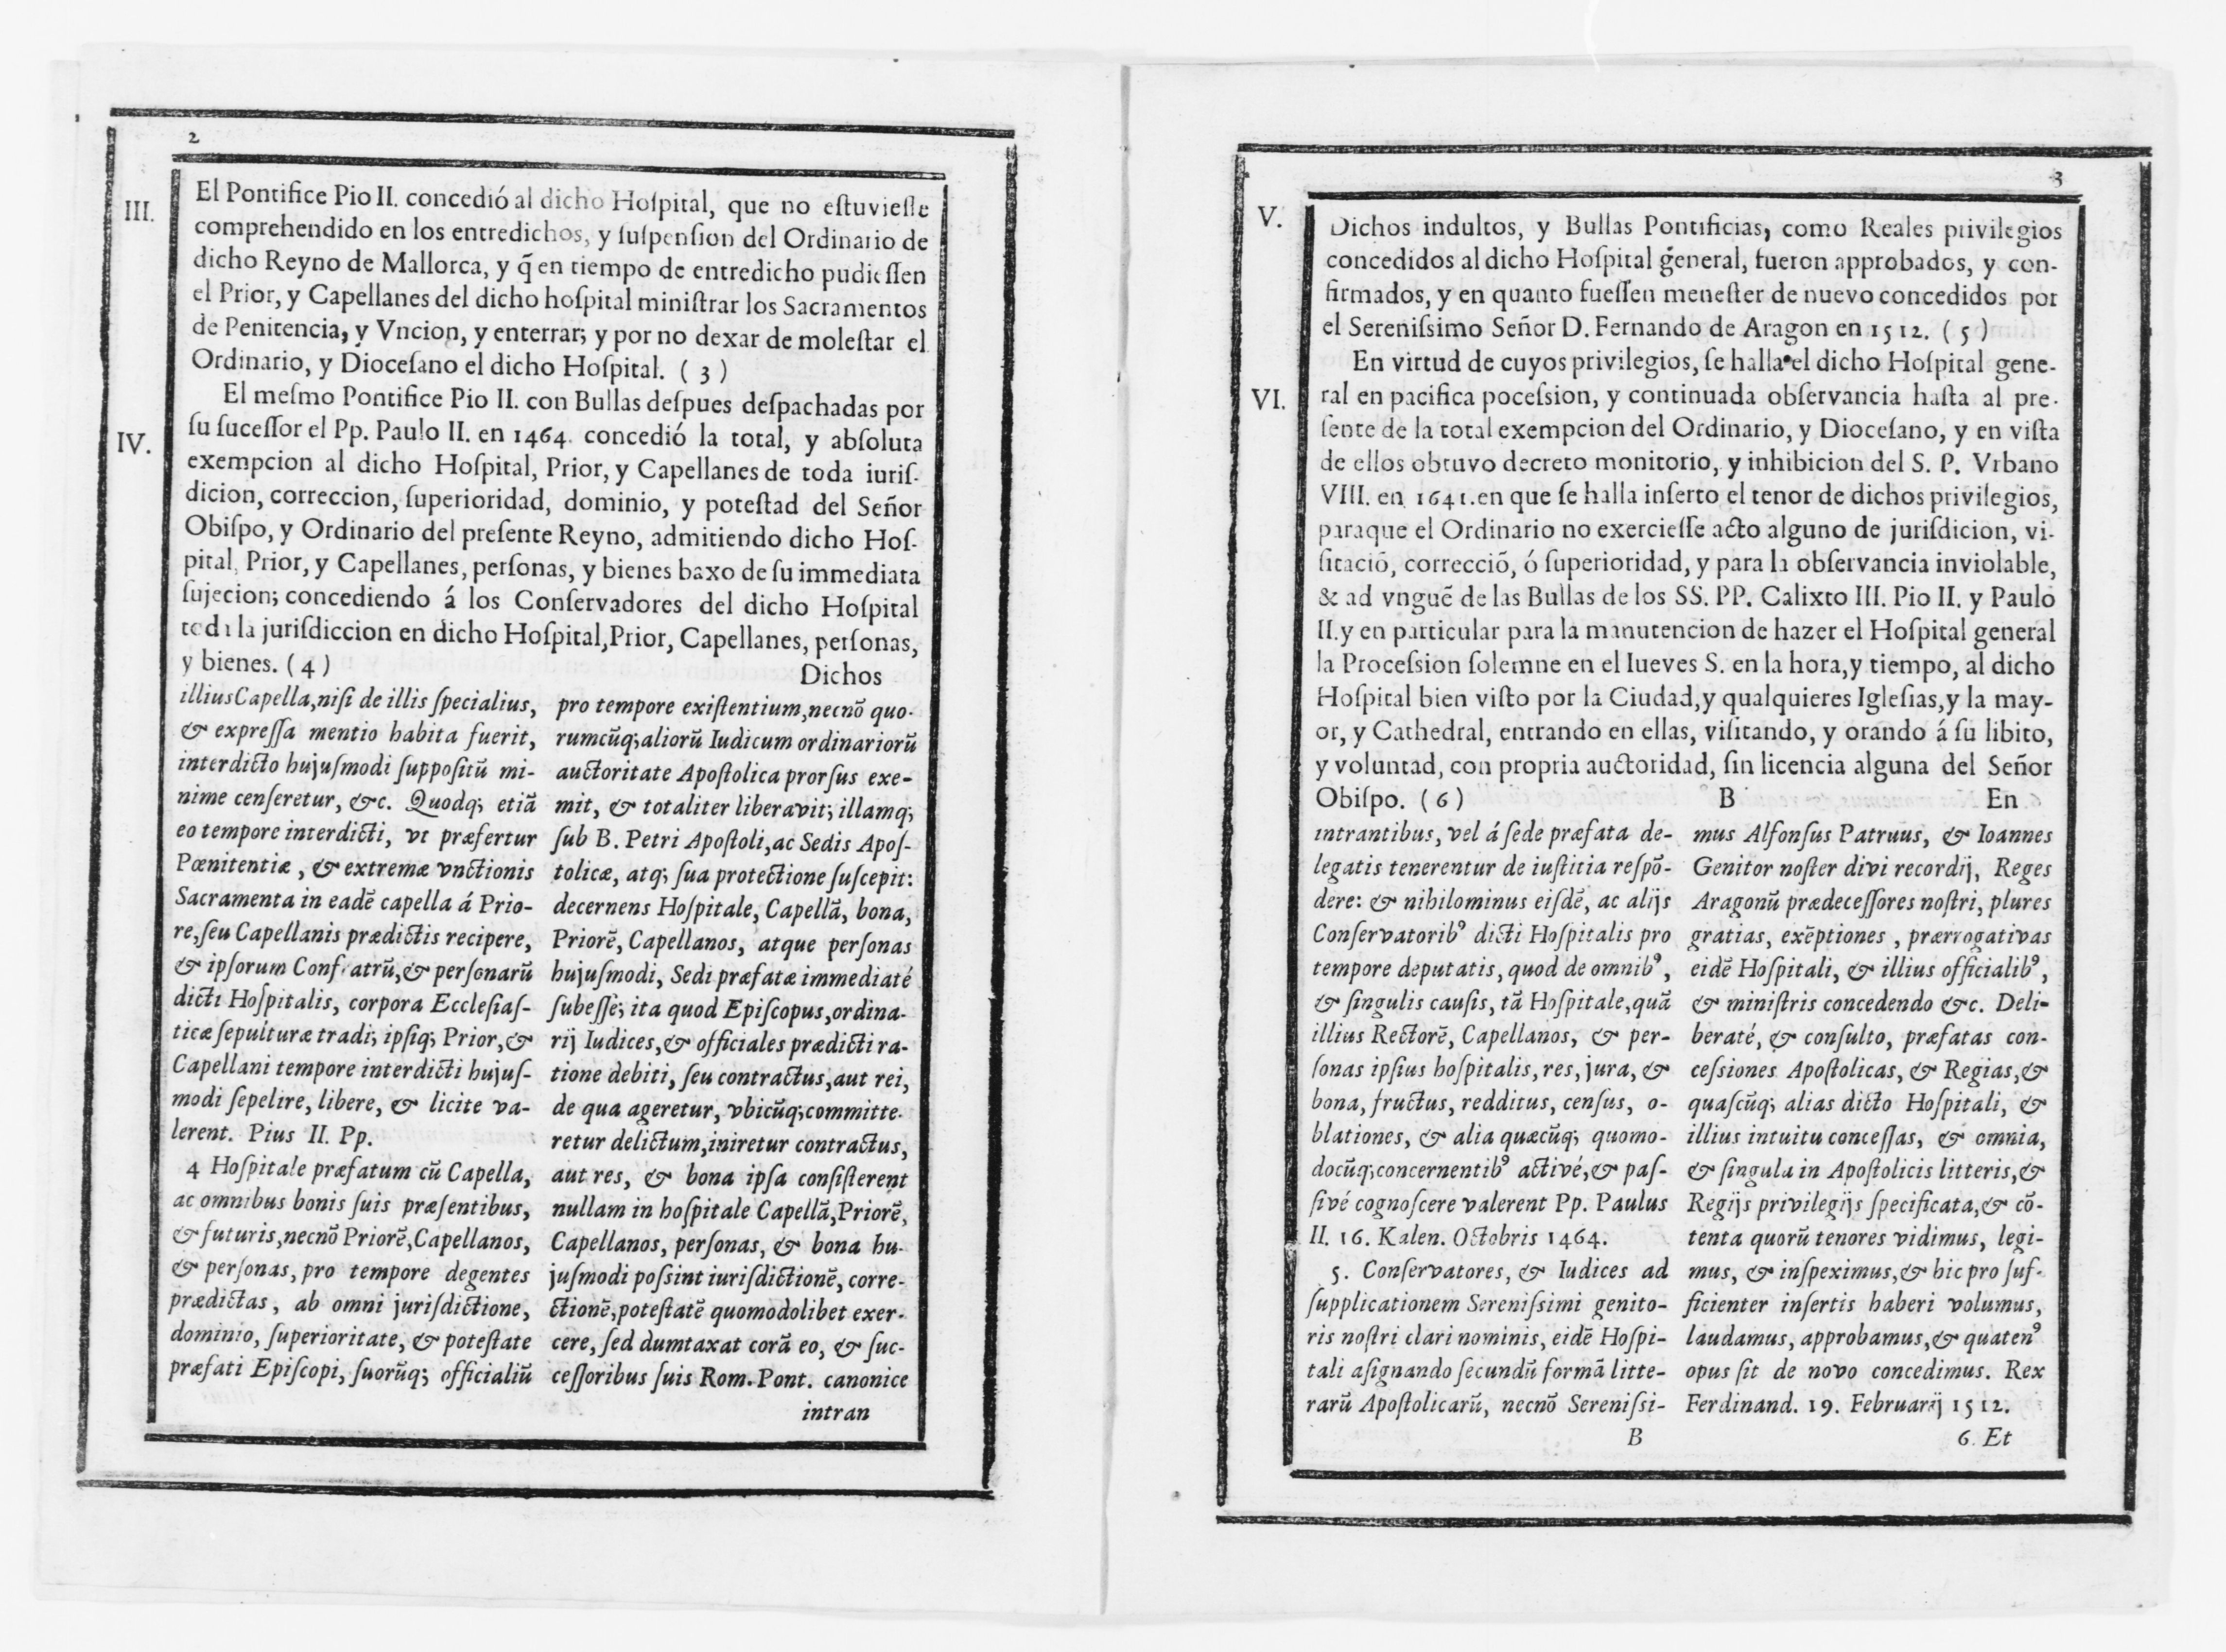 2
III.
El Pontifice Pio II. concedió al dicho Hoſpital, que no eſtuvieſſe
comprehendido en los entredichos, y ſuſpenſion del Ordinario de
dicho Reyno de Mallorca, y q̃ en tiempo de entredicho pudieſſen
el Prior, y Capellanes del dicho hoſpital miniſtrar los Sacramentos
de Penitencia, y Vncion, y enterrar; y por no dexar de moleſtar el
Ordinario, y Dioceſano el dicho Hoſpital. ( 3 )
IV.
El meſmo Pontifice Pio II. con Bullas deſpues deſpachadas por
ſu ſuceſſor el Pp. Paulo II. en 1464. concedió la total, y abſoluta
exempcion al dicho Hoſpital, Prior, y Capellanes de toda iuriſ-
dicion, correccion, ſuperioridad, dominio, y poteſtad del Señor
Obiſpo, y Ordinario del preſente Reyno, admitiendo dicho Hoſ-
pital, Prior, y Capellanes, perſonas, y bienes baxo de ſu immediata
ſujecion; concediendo á los Conſervadores del dicho Hoſpital
toda la juriſdiccion en dicho Hoſpital, Prior, Capellanes, perſonas,
y bienes. ( 4 ) Dichos
illius Capella, niſi de illis ſpecialius,
& expreſſa mentio habita fuerit,
interdicto hujuſmodi ſuppoſitũ mi-
nime cenſeretur, &c. Quodq; etiã
eo tempore interdicti, vt præfertur
Pœnitentiæ, & extremæ vnctionis
Sacramenta in eadẽ capella á Prio-
re, ſeu Capellanis prædictis recipere,
& ipſorum Confratrũ, & perſonarũ
dicti Hoſpitalis, corpora Eccleſiaſ-
ticæ ſepulturæ tradi; ipſiq; Prior, &
Capellani tempore interdicti hujuſ-
modi ſepelire, libere, & licite va-
lerent. Pius II. Pp.
4 Hoſpitale præfatum cũ Capella,
ac omnibus bonis ſuis præſentibus,
& futuris, necnõ Priorẽ, Capellanos,
& perſonas, pro tempore degentes
prædictas, ab omni juriſdictione,
dominio, ſuperioritate, & poteſtate
præfati Epiſcopi, ſuorũq; officialiũ
pro tempore exiſtentium, necnõ quo-
rumcũq; aliorũ Iudicum ordinariorũ
auctoritate Apoſtolica prorſus exe-
mit, & totaliter liberavit; illamq;
ſub B. Petri Apoſtoli, ac Sedis Apoſ-
tolicæ, atq; ſua protectione ſuſcepit:
decernens Hoſpitale, Capellã, bona,
Priorẽ, Capellanos, atque perſonas
hujuſmodi, Sedi præfatæ immediaté
ſubeſſe; ita quod Epiſcopus, ordina-
rij Iudices, & officiales prædicti ra-
tione debiti, ſeu contractus, aut rei,
de qua ageretur, vbicũq; committe-
retur delictum, iniretur contractus,
aut res, & bona ipſa conſiſterent
nullam in hoſpitale Capellã, Priorẽ,
Capellanos, perſonas, & bona hu-
juſmodi poſsint iuriſdictionẽ, corre-
ctionẽ, poteſtatẽ quomodolibet exer-
cere, ſed dumtaxat corã eo, & ſuc-
ceſſoribus ſuis Rom. Pont. canonice
intran
3
V.
Dichos indultos, y Bullas Pontificias, como Reales privilegios
concedidos al dicho Hoſpital general, fueron approbados, y con-
firmados, y en quanto fueſſen meneſter de nuevo concedidos por
el Sereniſsimo Señor D. Fernando de Aragon en 1512. ( 5 )
VI.
En virtud de cuyos privilegios, ſe halla el dicho Hoſpital gene-
ral en pacifica poceſsion, y continuada obſervancia haſta al pre-
ſente de la total exempcion del Ordinario, y Dioceſano, y en viſta
de ellos obtuvo decreto monitorio, y inhibicion del S. P. Vrbano
VIII. en 1641. en que ſe halla inſerto el tenor de dichos privilegios,
paraque el Ordinario no exercieſſe acto alguno de juriſdicion, vi-
ſitaciõ, correcciõ, ó ſuperioridad, y para la obſervancia inviolable,
& ad vnguẽ de las Bullas de los SS. PP. Calixto III. Pio II. y Paulo
II. y en particular para la manutencion de hazer el Hoſpital general
la Proceſsion ſolemne en el Iueves S. en la hora, y tiempo, al dicho
Hoſpital bien viſto por la Ciudad, y qualquieres Igleſias, y la may-
or, y Cathedral, entrando en ellas, viſitando, y orando á ſu libito,
y voluntad, con propria auctoridad, ſin licencia alguna del Señor
Obiſpo. ( 6 ) B En
intrantibus, vel á ſede præfata de-
legatis tenerentur de iuſtitia reſpõ-
dere: & nihilominus eiſdẽ, ac alijs
Conſervatoribꝰ dicti Hoſpitalis pro
tempore deputatis, quod de omnibꝰ,
& ſingulis cauſis, tã Hoſpitale, quã
illius Rectorẽ, Capellanos, & per-
ſonas ipſius hoſpitalis, res, jura, &
bona, fructus, redditus, cenſus, o-
blationes, & alia quæcũq; quomo-
docũq; concernentibꝰ activé, & paſ-
ſivé cognoſcere valerent Pp. Paulus
II. 16. Kalen. Octobris 1464.
5. Conſervatores, & Iudices ad
ſupplicationem Sereniſsimi genito-
ris noſtri clari nominis, eidẽ Hoſpi-
tali aſignando ſecundũ formã litte-
rarũ Apoſtolicarũ, necnõ Sereniſsi-
B
mus Alfonſus Patruus, & Ioannes
Genitor noſter divi recordij, Reges
Aragonũ prædeceſſores noſtri, plures
gratias, exẽptiones, prærrogativas
eidẽ Hoſpitali, & illius officialibꝰ,
& miniſtris concedendo &c. Deli-
beraté, & conſulto, præfatas con-
ceſsiones Apoſtolicas, & Regias, &
quaſcũq; alias dicto Hoſpitali, &
illius intuitu conceſſas, & omnia,
& ſingula in Apoſtolicis litteris, &
Regijs privilegijs ſpecificata, & cõ-
tenta quorũ tenores vidimus, legi-
mus, & inſpeximus, & hic pro ſuf-
ficienter inſertis haberi volumus,
laudamus, approbamus, & quatenꝰ
opus ſit de novo concedimus. Rex
Ferdinand. 19. Februarij 1512.
6. Et